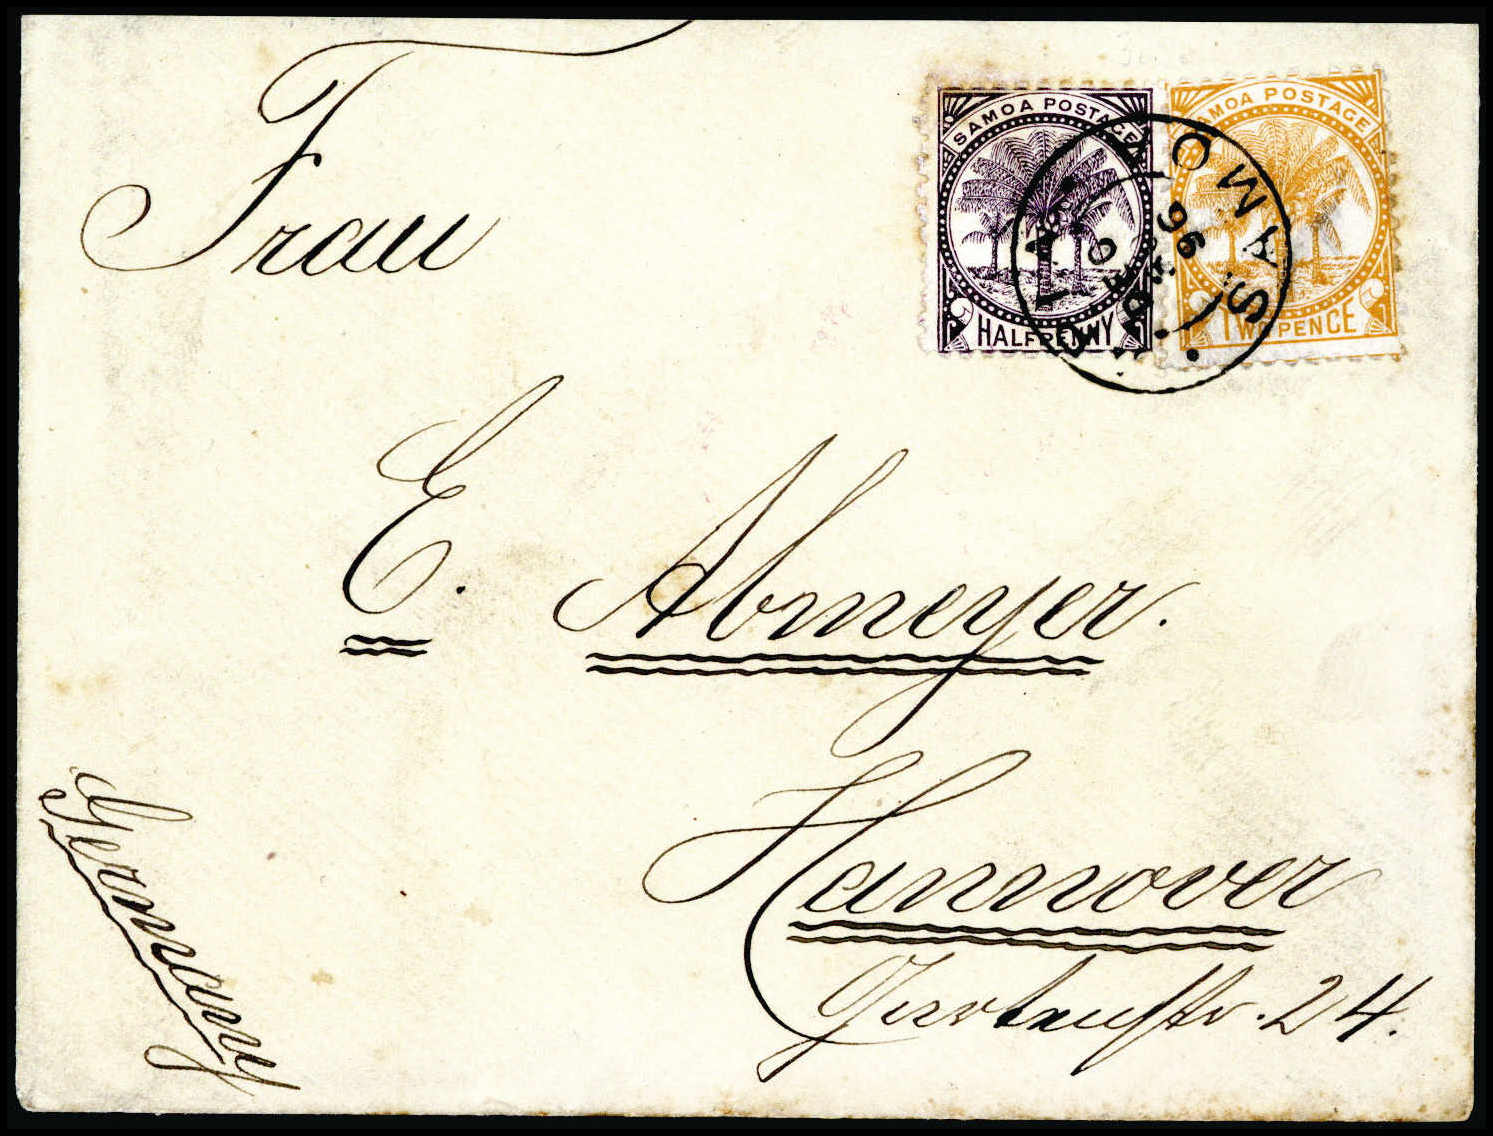 SAMOA POSTAGE
HALFPENNY
SAMOA POSTAGE
TWO PENCE
APIA SAMOA
96
Frau
E. Abmeyer.
Hannover
Gartenstr. 24.
Germany